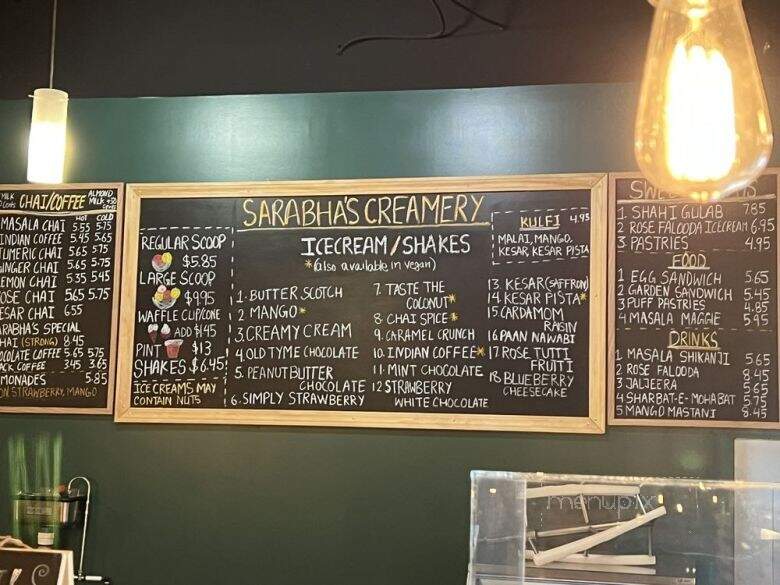 CHAI/COFFEE
ALMOND
MILK +50
HOT COLD
MASALA CHAI 5.55 5.75
INDIAN COFFEE 5.45 5.65
TUMERIC CHAI 5.65 5.75
GINGER CHAI 5.65 5.75
LEMON CHAI 5.35 5.45
ROSE CHAI 5.65 5.75
KESAR CHAI 6.55
SARABHA'S SPECIAL
CHAI (STRONG) 8.45
CHOCOLATE COFFEE 5.65 5.75
BLACK COFFEE 3.45 3.65
LEMONADES 5.85
STRAWBERRY, MANGO
SARABHA'S CREAMERY
ICECREAM/SHAKES
*(also available in vegan)
REGULAR SCOOP
$5.85
LARGE SCOOP
$9.95
WAFFLE CLIP/CONE
ADD $1.45
PINT $13
SHAKES $6.45
ICE CREAMS MAY
CONTAIN NUTS
1. BUTTER SCOTCH
2. MANGO*
3. CREAMY CREAM
4. OLD TYME CHOCOLATE
5. PEANUT BUTTER
CHOCOLATE
6. SIMPLY STRAWBERRY
7. TASTE THE
COCONUT*
8. CHAI SPICE*
9. CARAMEL CRUNCH
10. INDIAN COFFEE*
11. MINT CHOCOLATE
12 STRAWBERRY
WHITE CHOCOLATE
KULFI 4.95
MALAI, MANGO,
KESAR, KESAR PISTA
13 KESAR (SAFFRON)
14 KESAR PISTA*
15 CARDAMOM
RAISIN
16 PAAN NAWABI
17 ROSE TUTTI
FRUITI
18 BLUEBERRY
CHEESECAKE
1. SHAHI GULAB 7.85
2 ROSE FALOODA ICECREAM 6.95
3 PASTRIES 4.95
FOOD
1 EGG SANDWICH 5.65
2 GARDEN SANDWICH 5.45
3 PUFF PASTRIES 4.85
4 MASALA MAGGIE 5.95
DRINKS
1 MASALA SHIKANJI 5.65
2 ROSE FALOODA 8.45
3 JALJEERA 5.65
4 SHARBAT-E-MOHABAT 5.75
5 MANGO MASTANI 8.45
menupix